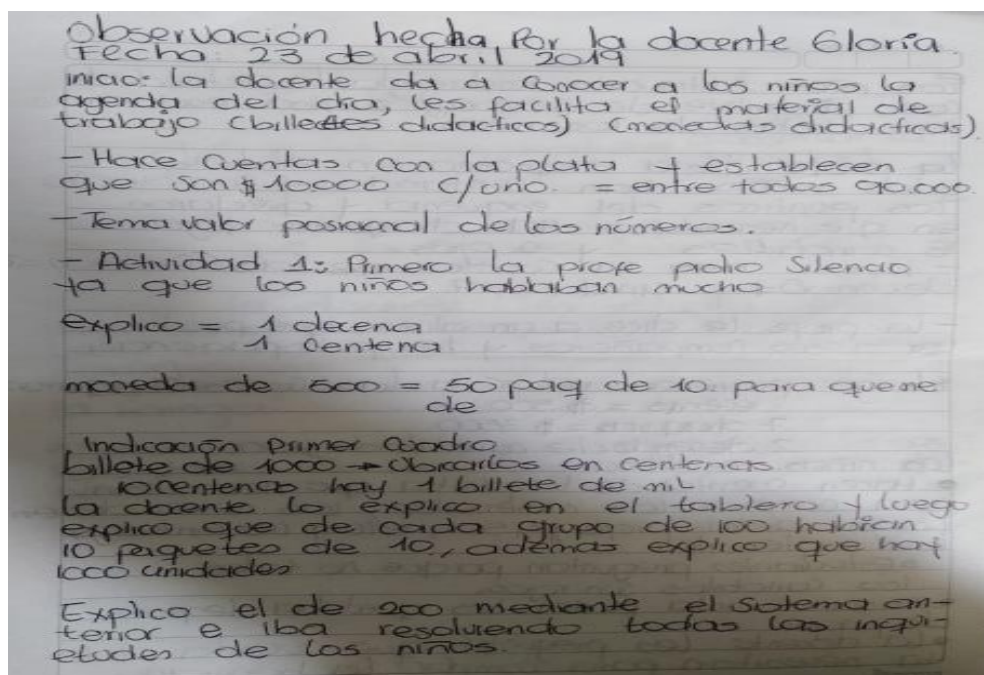 Observación hecha Por la docente Gloria.
Fecha 23 de abril 2019
inicio: la docente da a conocer a los niños la
agenda del dia, les facilita el material de
trabajo (billetes didacticos) (monedas didacticas)
- Hace Cuentas con la plata y establecen
que son $10000 c/uno. = entre todos 90.000.
- Tema valor posicional de los números.
- Actividad 1: Primero la profe pidio Silencio
ya que los niños hablaban mucho
explico = 1 decena
1 Centena
moneda de 500 = 50 paq de 10. para que me
de
Indicación primer Cuadro
billete de 1000 → Ubicarlos en centenas
10 centenas hay 1 billete de mil
La docente lo explico en el tablero y luego
explico que de cada grupo de 100 habian
10 paquetes de 10, además explico que hay
1000 unidades
Explico el de 200 mediante el sistema an-
terior e iba resolviendo todas las inqui-
etudes de los niños.